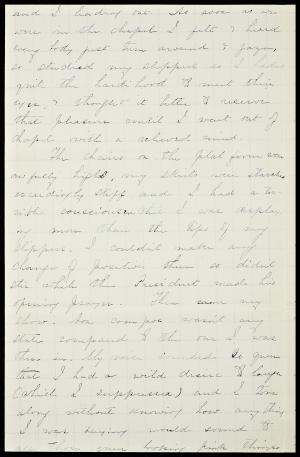 and I leading out. As soon as we
were in the chapel I felt & heard
every body just turn around & gaze,
so studied my slippers as I hadn't
quite the hardihood to meet their
eyes, & thought it better to reserve
that pleasure until I went out of
chapel with a relieved mind.
The chairs on the platform were
awfully high, my skirts were starched
exceedingly stiff and I had a ter-
rible consciousness that I was display-
ing more than the tips of my
slippers. I couldn't make any
change of position then so didn't
stir while the President made his
opening prayer. Then came my
show. Non compos wasn't any
state compared to the one I was
then in. My voice sounded so queer
that I had a wild desire to laugh
(which I suppressed) and I tore
along without knowing how anything
I was saying would sound to
looking pink things